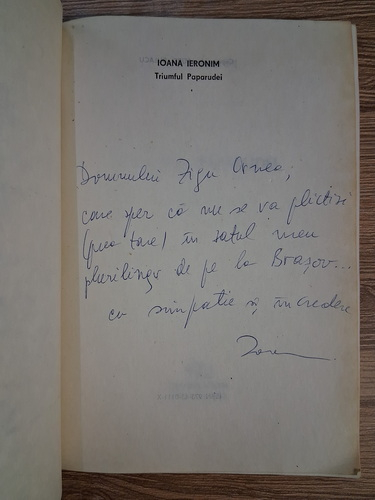 IOANA IERONIM
Triumful Paparudei
Domnului Zigu Ornea,
care sper că nu se va plictisi
(prea tare) în satul meu
plurilingv de pe la Brașov...
cu simpatie și încredere